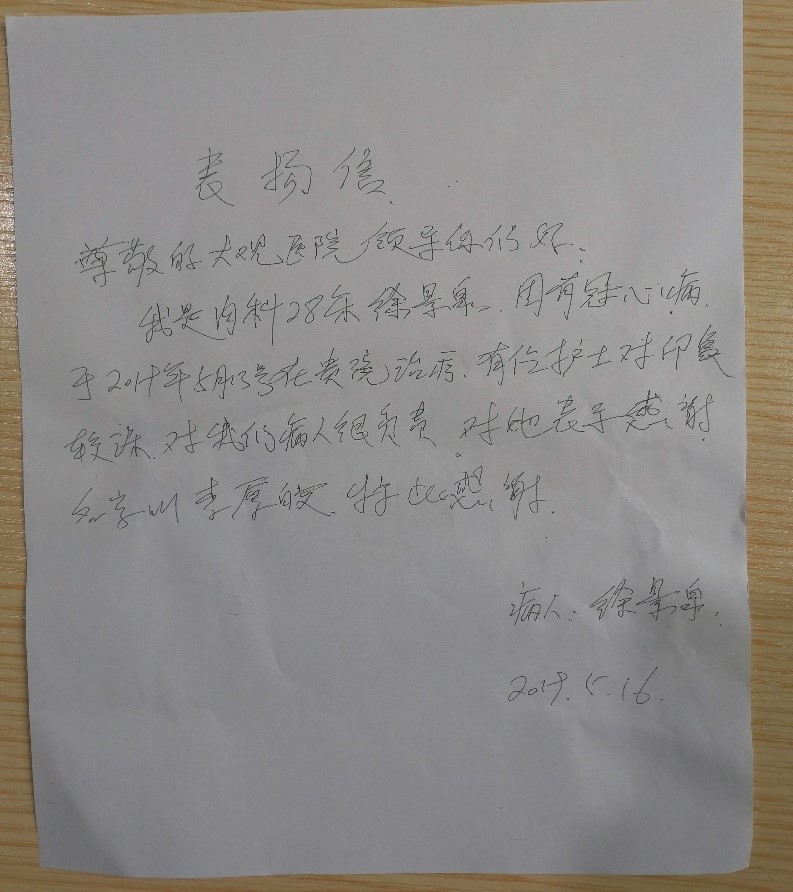 表扬信.
尊敬的大观医院领导你们好.
我是内科28床徐景泉. 因首冠心病.
于2019年5月13号在贵院治疗. 有位护士对印象
较深. 对我们病人很负责. 对她表示感谢.
名字叫李厚皎. 特此感谢.
病人: 徐景泉.
2019. 5. 16.